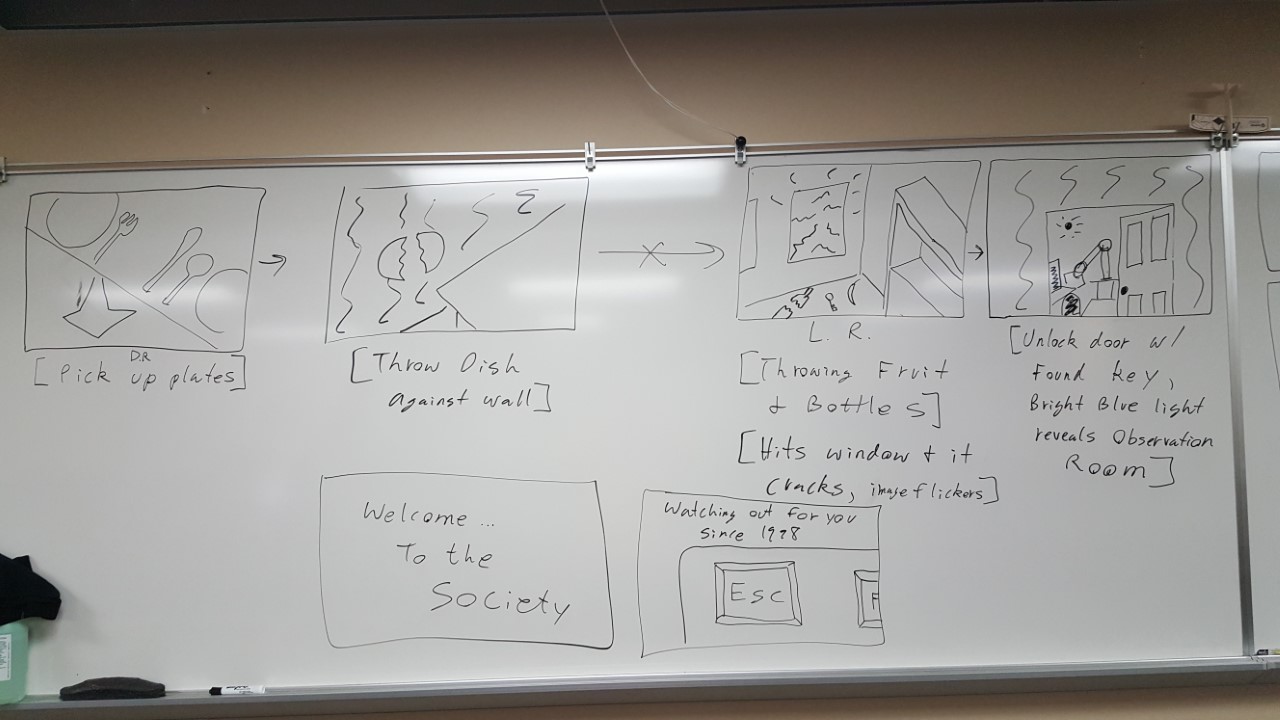 D.R
[Pick up plates]
[Throw Dish
against wall]
L. R.
[Throwing Fruit
& Bottles]
[Hits window & it
cracks, image flickers]
[Unlock door w/
Found key,
Bright Blue light
reveals Observation
Room]
Welcome...
To the
Society
Watching out for you
since 1978
Esc
F